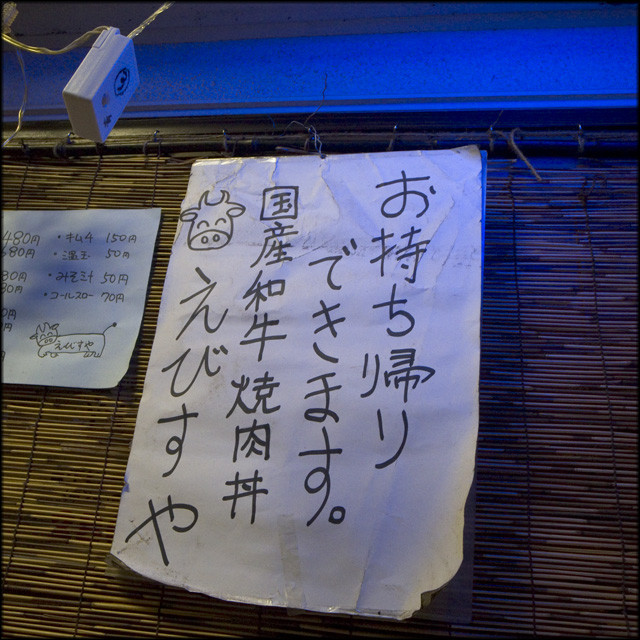 お持ち帰り
できます。
国産和牛焼肉丼
えびすや
480円 ・キムチ 150円
680円 ・温玉 50円
・みそ汁 50円
・コールスロー 70円
えびすや